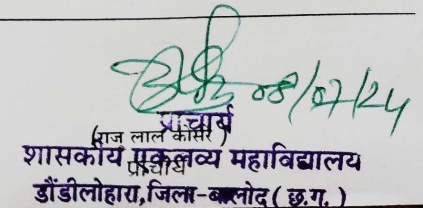 08/07/24
प्राचार्य
(राज लाल कोसरे)
शासकीय एकलव्य महाविद्यालय
प्राचार्य
डौंडीलोहारा, जिला-बालोद ( छ.ग. )